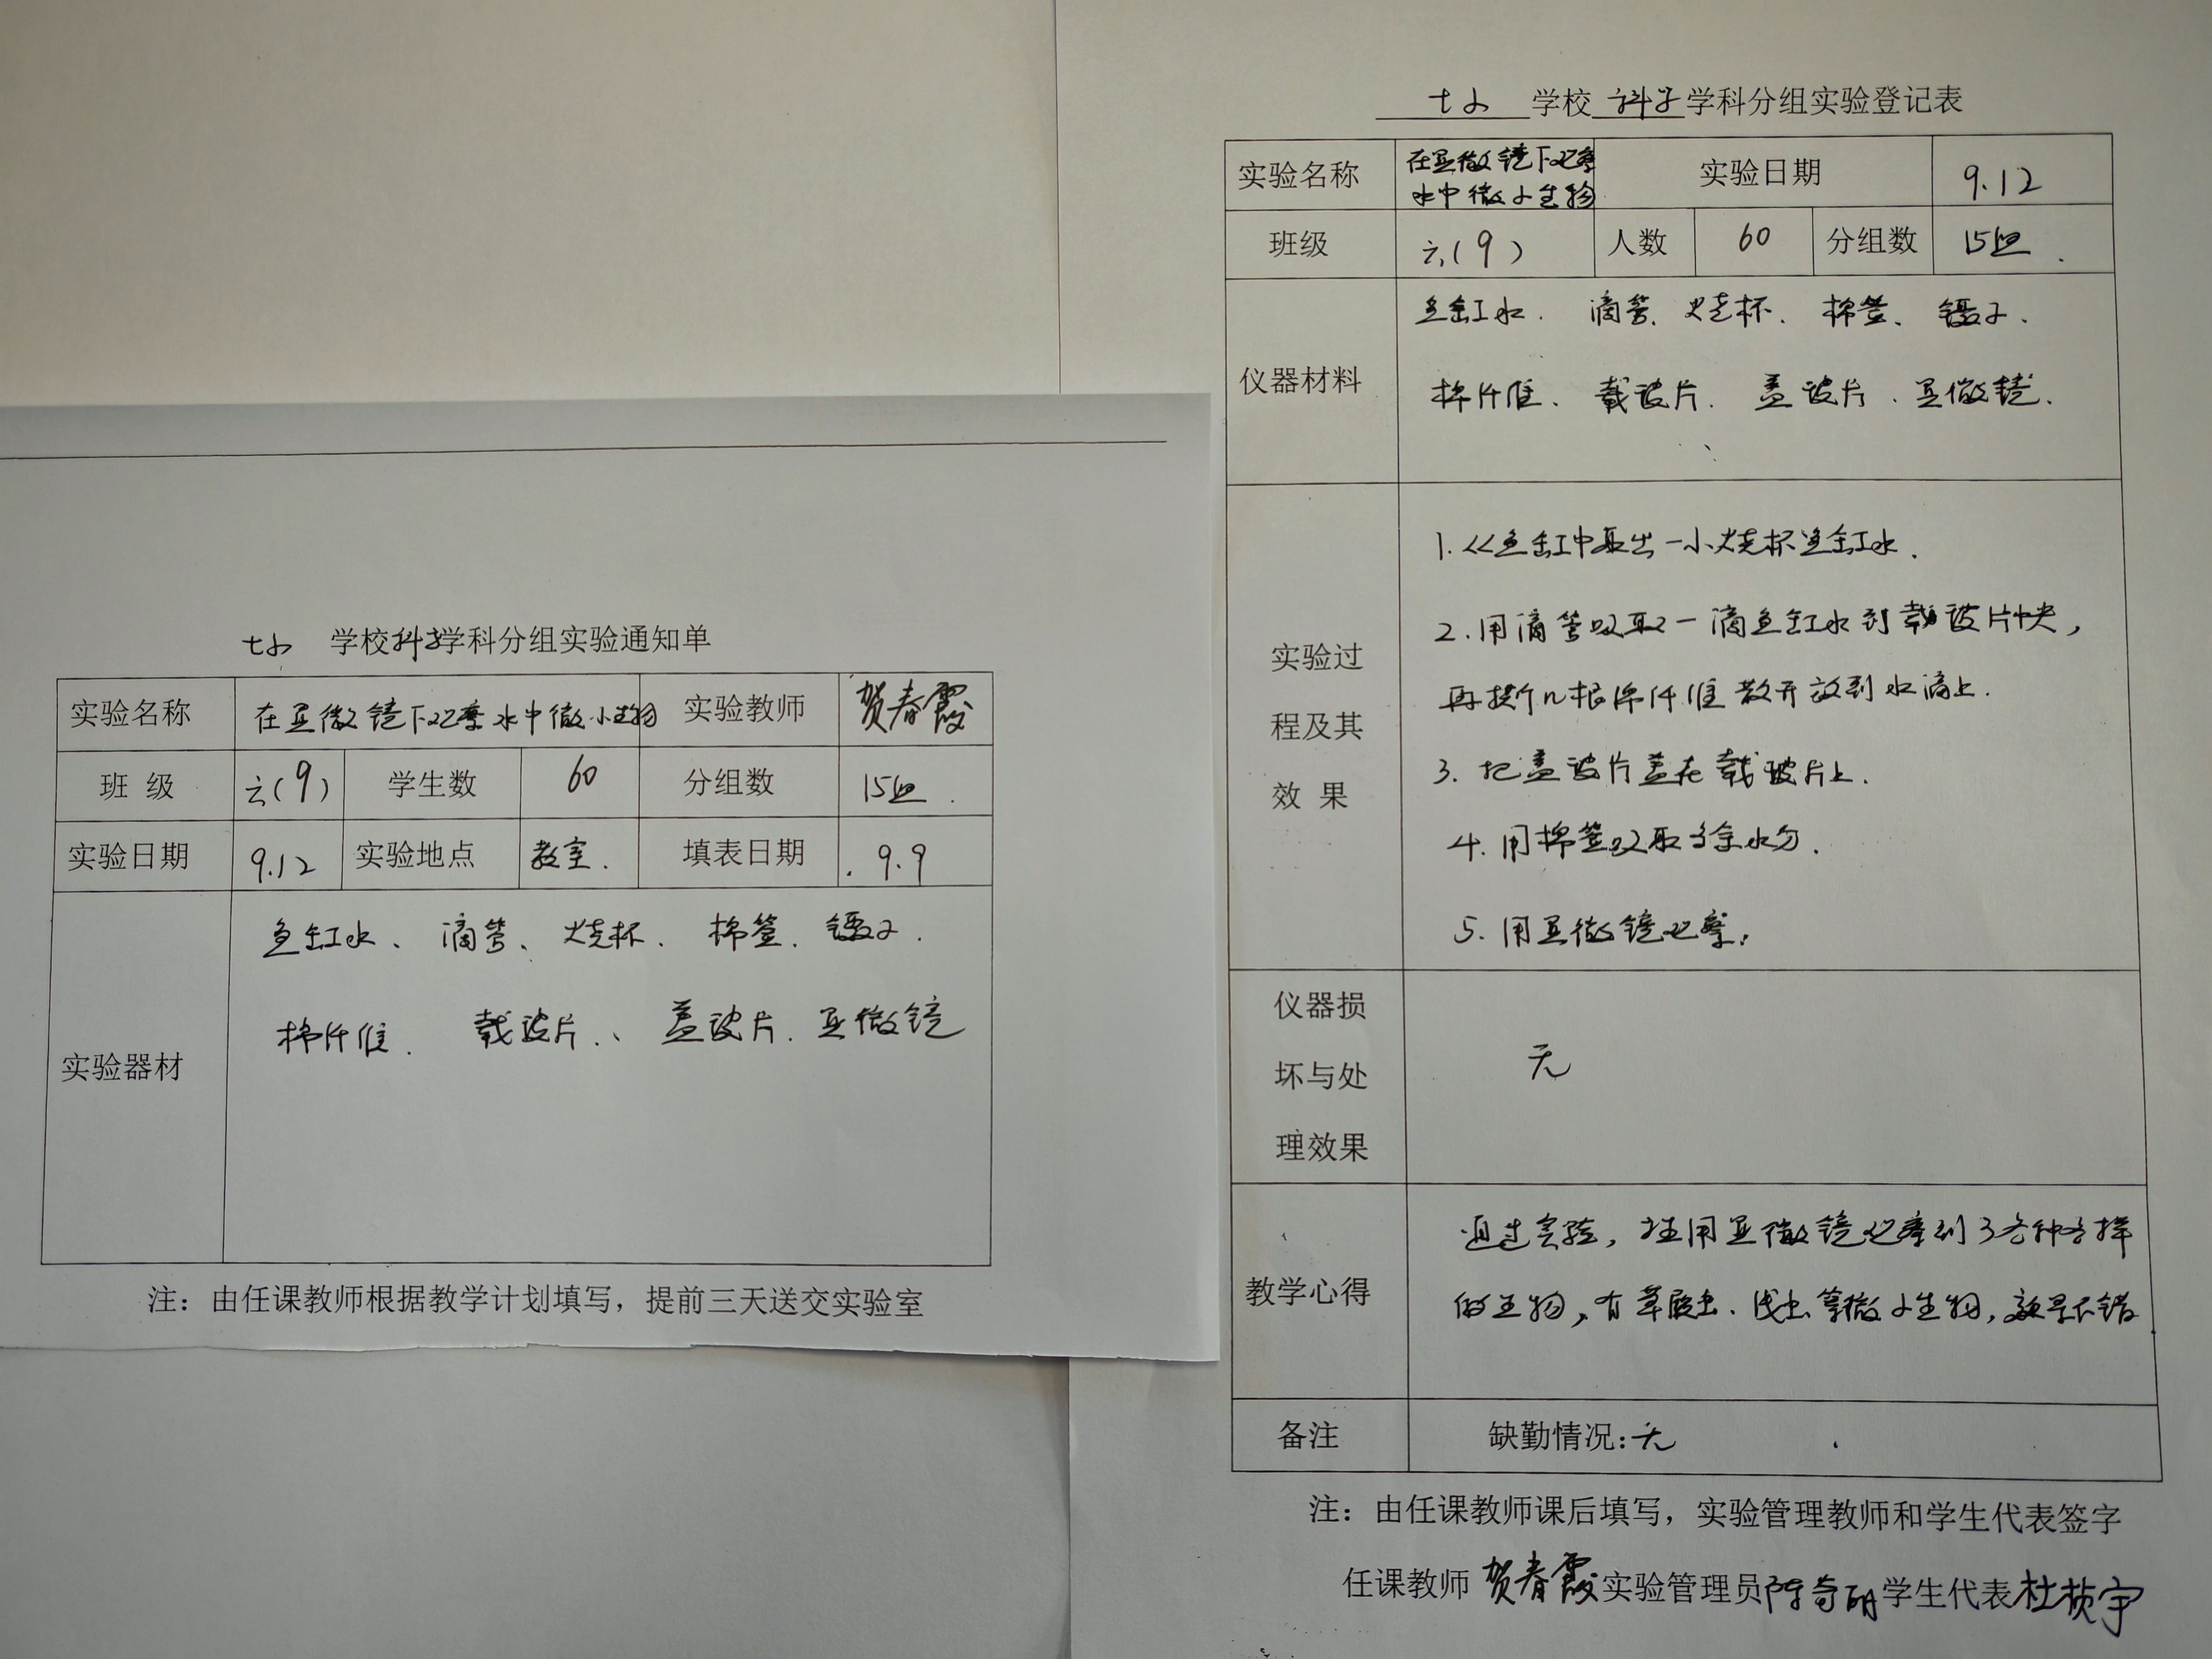 七小 学校科学学科分组实验通知单
实验名称 在显微镜下观察水中微小生物 实验教师 贺春霞
班 级 六(9) 学生数 60 分组数 15组.
实验日期 9.12 实验地点 教室. 填表日期 9.9
实验器材
鱼缸水、滴管、烧杯、棉签、镊子.
棉纤维. 载玻片、盖玻片. 显微镜
注：由任课教师根据教学计划填写，提前三天送交实验室
七小 学校 科学 学科分组实验登记表
实验名称 在显微镜下观察 实验日期 9.12
水中微小生物
班级 六(9) 人数 60 分组数 15组.
仪器材料
鱼缸水. 滴管、烧杯、棉签、镊子.
棉纤维、载玻片. 盖玻片. 显微镜.
实验过
程及其
效 果
1. 从鱼缸中取出一小烧杯鱼缸水.
2. 用滴管吸取一滴鱼缸水到载玻片中央，
再撕几根棉纤维散开放到水滴上.
3. 把盖玻片盖在载玻片上.
4. 用棉签吸取多余水分.
5. 用显微镜观察.
仪器损
坏与处
理效果
无
教学心得
通过实验，学生用显微镜观察到了各种各样
的生物，有草履虫、线虫等微小生物，效果不错
备注 缺勤情况:无
注：由任课教师课后填写，实验管理教师和学生代表签字
任课教师 贺春霞 实验管理员 陈 学生代表 杜 宇